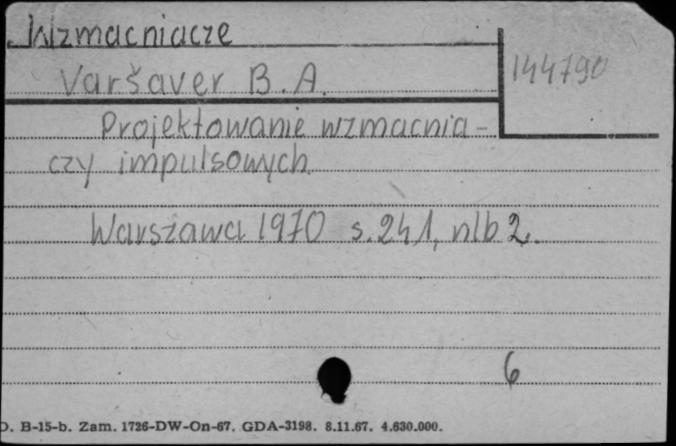 Wzmacniacze
Varšaver B.A.
144790
Projektowanie wzmacnia-
czy impulsowych.
Warszawa 1970 s.241, nlb 2.
6
D. B-15-b. Zam. 1726-DW-On-67. GDA-3198. 8.11.67. 4.630.000.